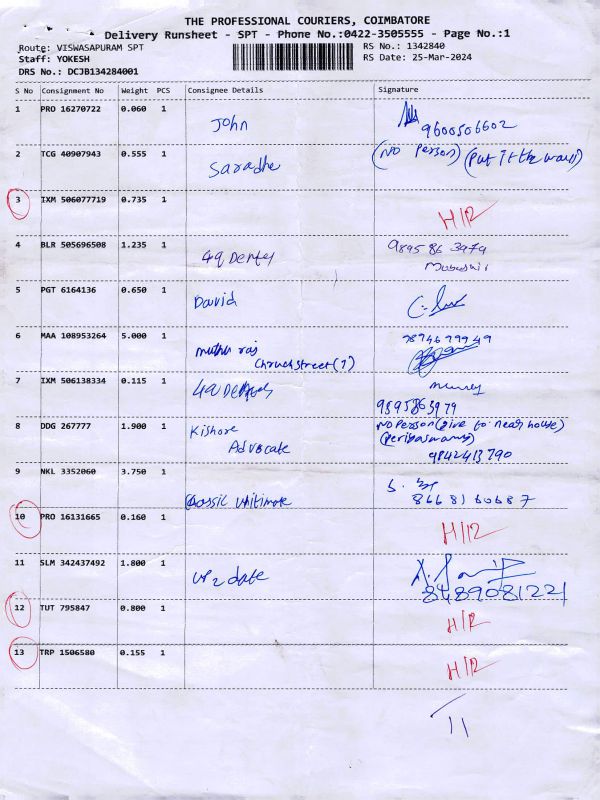 THE PROFESSIONAL COURIERS, COIMBATORE
Delivery Runsheet - SPT - Phone No.:0422-3505555 - Page No.:1
Route: VISWASAPURAM SPT RS No.: 1342840
Staff: YOKESH RS Date: 25-Mar-2024
DRS No.: DCJB134284001
S No Consignment No Weight PCS Consignee Details Signature
1 PRO 16270722 0.060 1 John 9600506602
2 TCG 40907943 0.555 1 Saradha (No Person) (Put it the ward)
3 IXM 506077719 0.735 1 H/R
4 BLR 505696508 1.235 1 4q Dentey 9895863979
5 PGT 6164136 0.650 1 David
6 MAA 108953264 5.000 1 muthu raj 7874679949
Chruch Street (7)
7 IXM 506138334 0.115 1 4q
9895863979
8 DDG 267777 1.900 1 Kishore No Person (give to near house)
Advocate (Periyaswamy)
9842413790
9 NKL 3352060 3.750 1 Classic Ultimate 8668160687
10 PRO 16131665 0.160 1 H/R
11 SLM 342437492 1.800 1 up2date 8489081221
12 TUT 795847 0.800 1 H/R
13 TRP 1506580 0.155 1 H/R
11